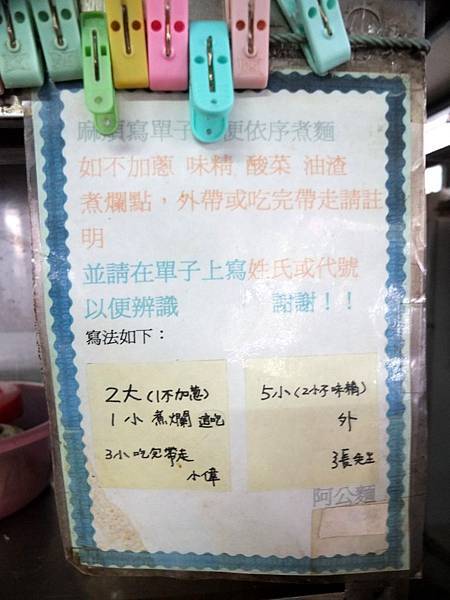 麻煩寫單子 便依序煮麵
如不加蔥 味精 酸菜 油渣
煮爛點，外帶或吃完帶走請註
明
並請在單子上寫姓氏或代號
以便辨識 謝謝！！
寫法如下：
2大(1不加蔥)
1小 煮爛 這吃
3小吃完帶走
小偉
5小(2不味精)
外
張先生
阿公麵